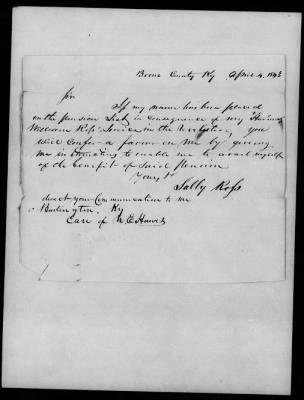 Boone County Ky April 4, 1843
Sir
If my name has been placed
on the pension List in consequence of my Husband
William Ross' Service in the Revolution, you
will confer a favor on me by giving
me instructions to enable me to avail myself
of the benefit of said Pension
Yours &c
Sally Ross
direct your Communication to me
Burlington, Ky
Care of